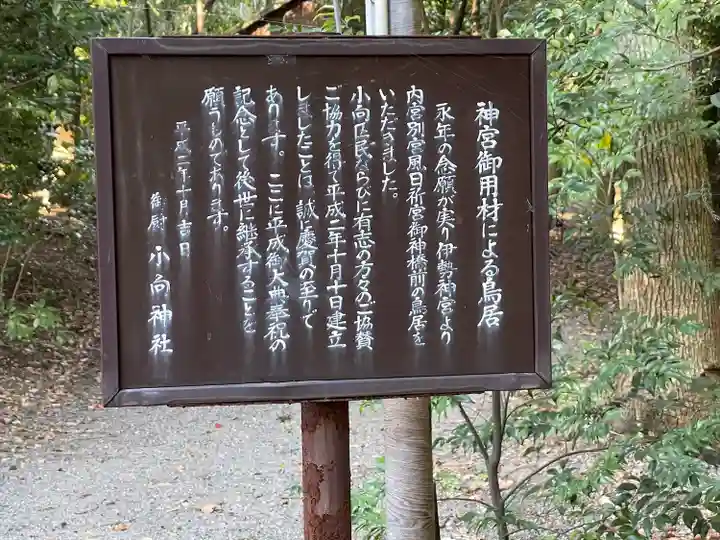 神宮御用材による鳥居
永年の念願が実り伊勢神宮より
内宮別宮風日祈宮御神橋前の鳥居を
いただきました。
小向区民ならびに有志の方々のご協賛
ご協力を得て平成二年十月十日建立
しましたことは、誠に慶賀の至りで
あります。ここに平成御大典奉祝の
記念として後世に継承することを
願うものであります。
平成二年十月吉日
御厨 小向神社